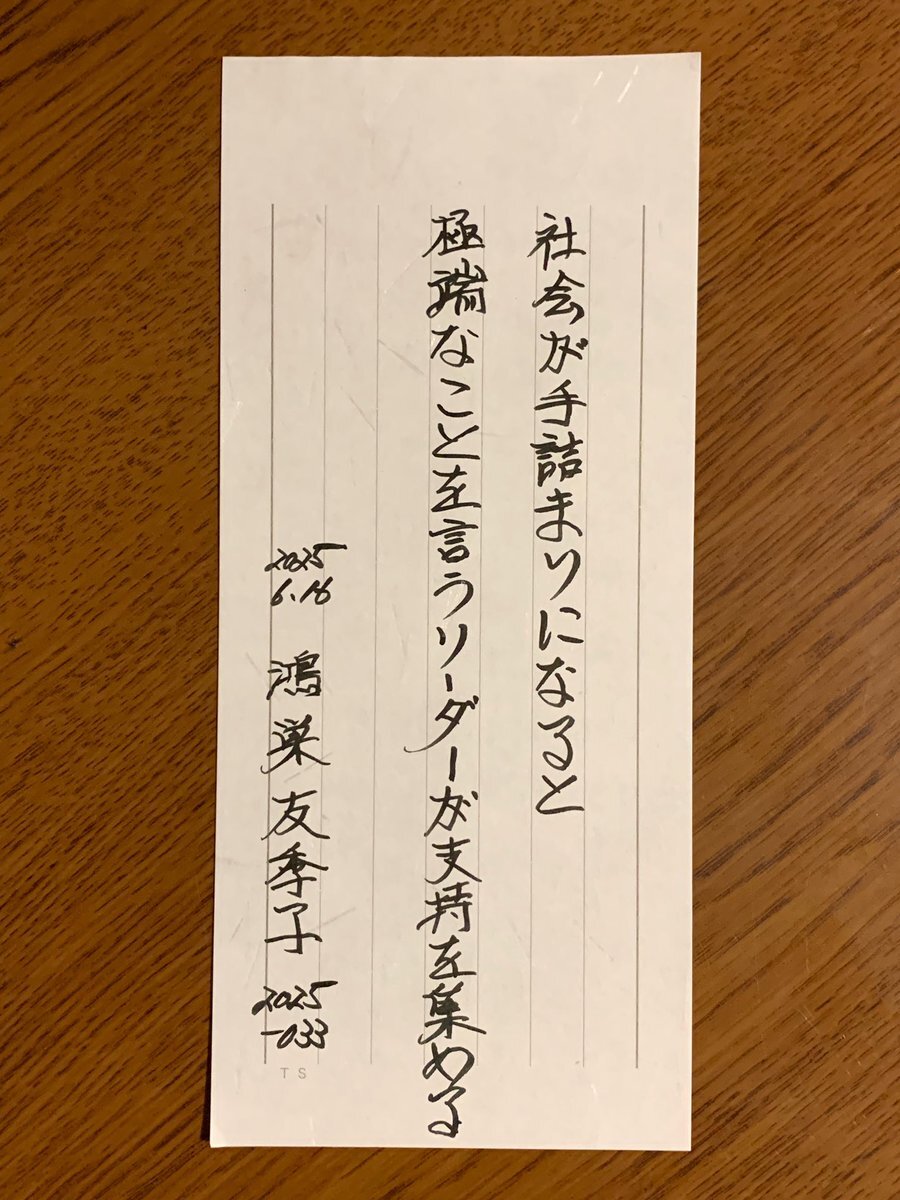 社会が手詰まりになると
極端なことを言うリーダーが支持を集める
2025
6.16
鴻巣友季子
2025
-033
TS